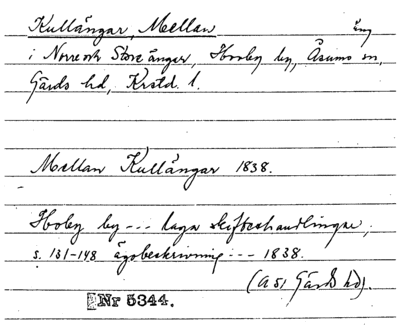 Kullängar, Mellan äng
i Norre och Store ängar, Hoby by, Åsums sn,
Gärds hd, Krstd. l.
Mellan Kullängar 1838.
Hoby by --- laga skifteshandlingar,
s. 131-148 ägobeskrivning --- 1838.
(A 51 Gärds hd).
Nr 5344.